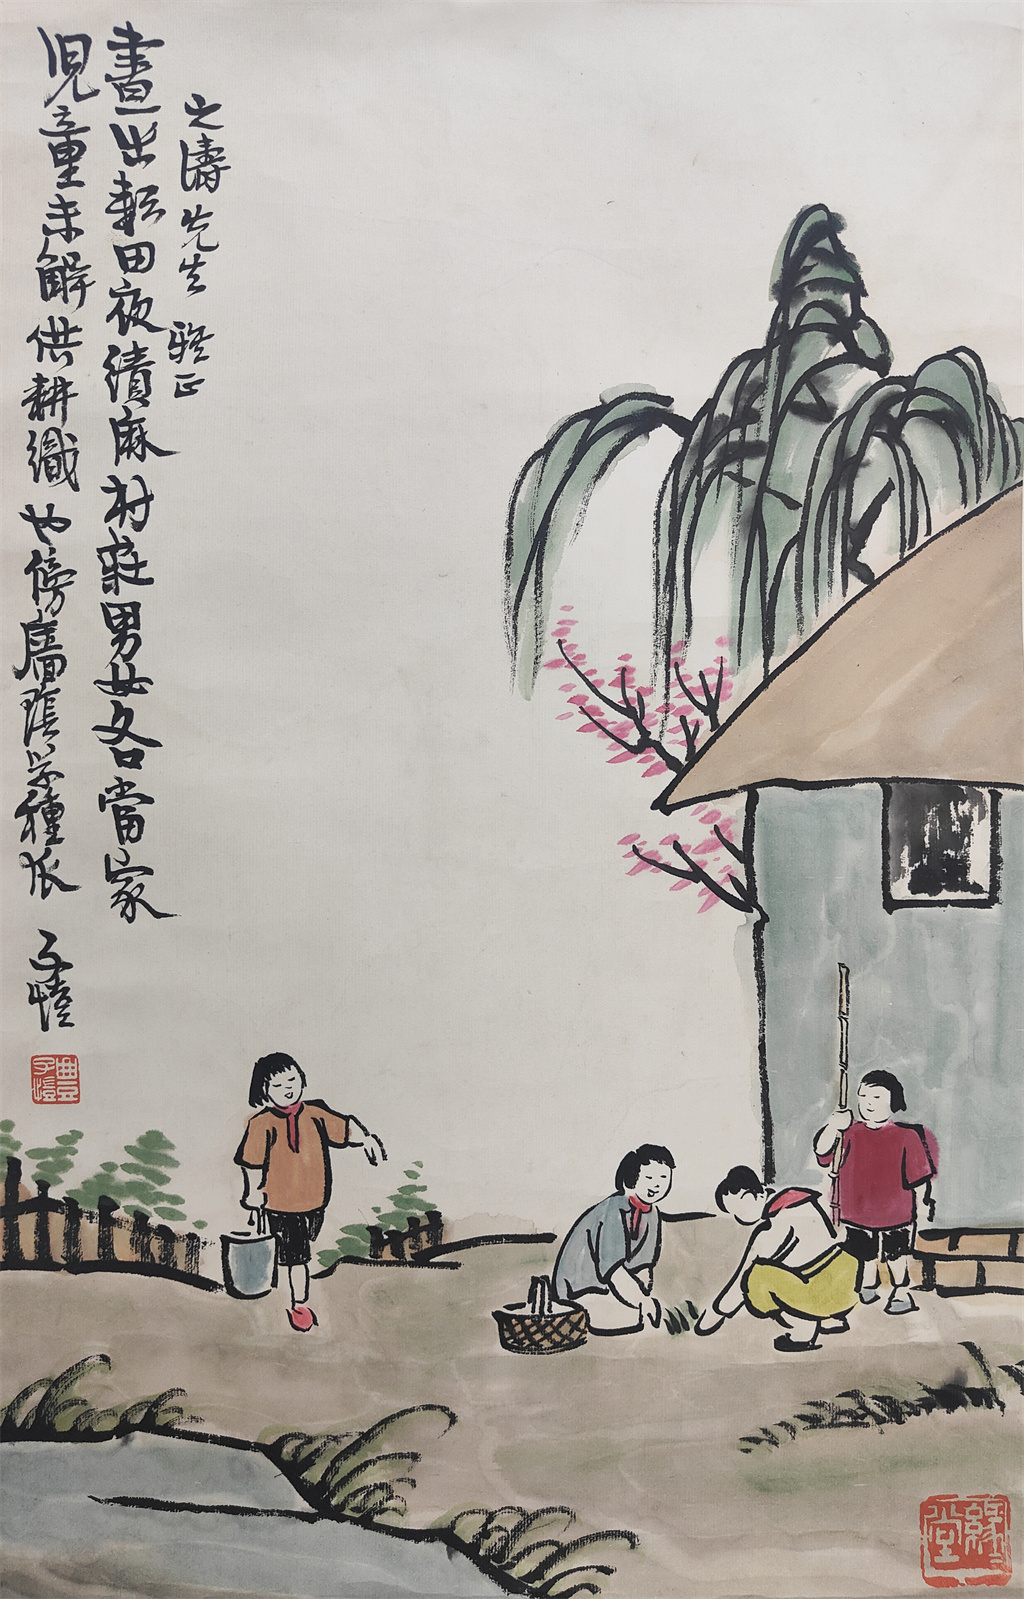 之濤先生 雅正
晝出耘田夜績麻村莊男女各當家
児童未解供耕織也傍廧陰学種瓜 子愷
豐子愷
緣緣堂